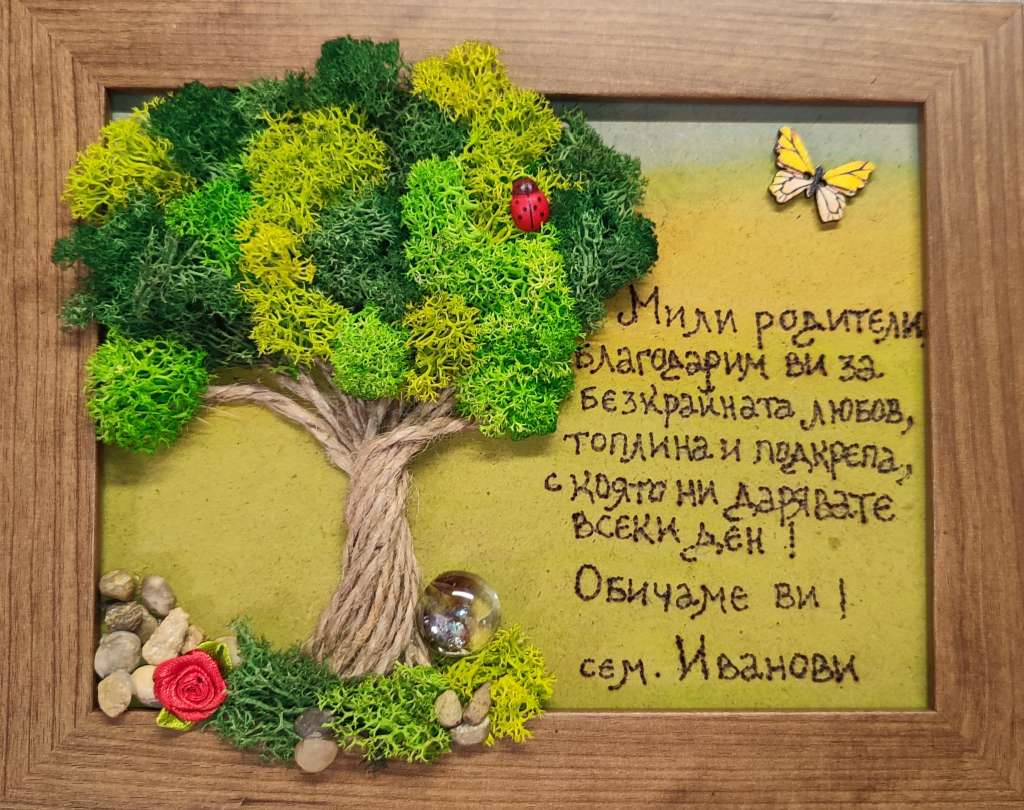 Мили родители
благодарим ви за
безкрайната любов,
топлина и подкрепа,
с която ни дарявате
всеки ден!
Обичаме ви!
сем. Иванови